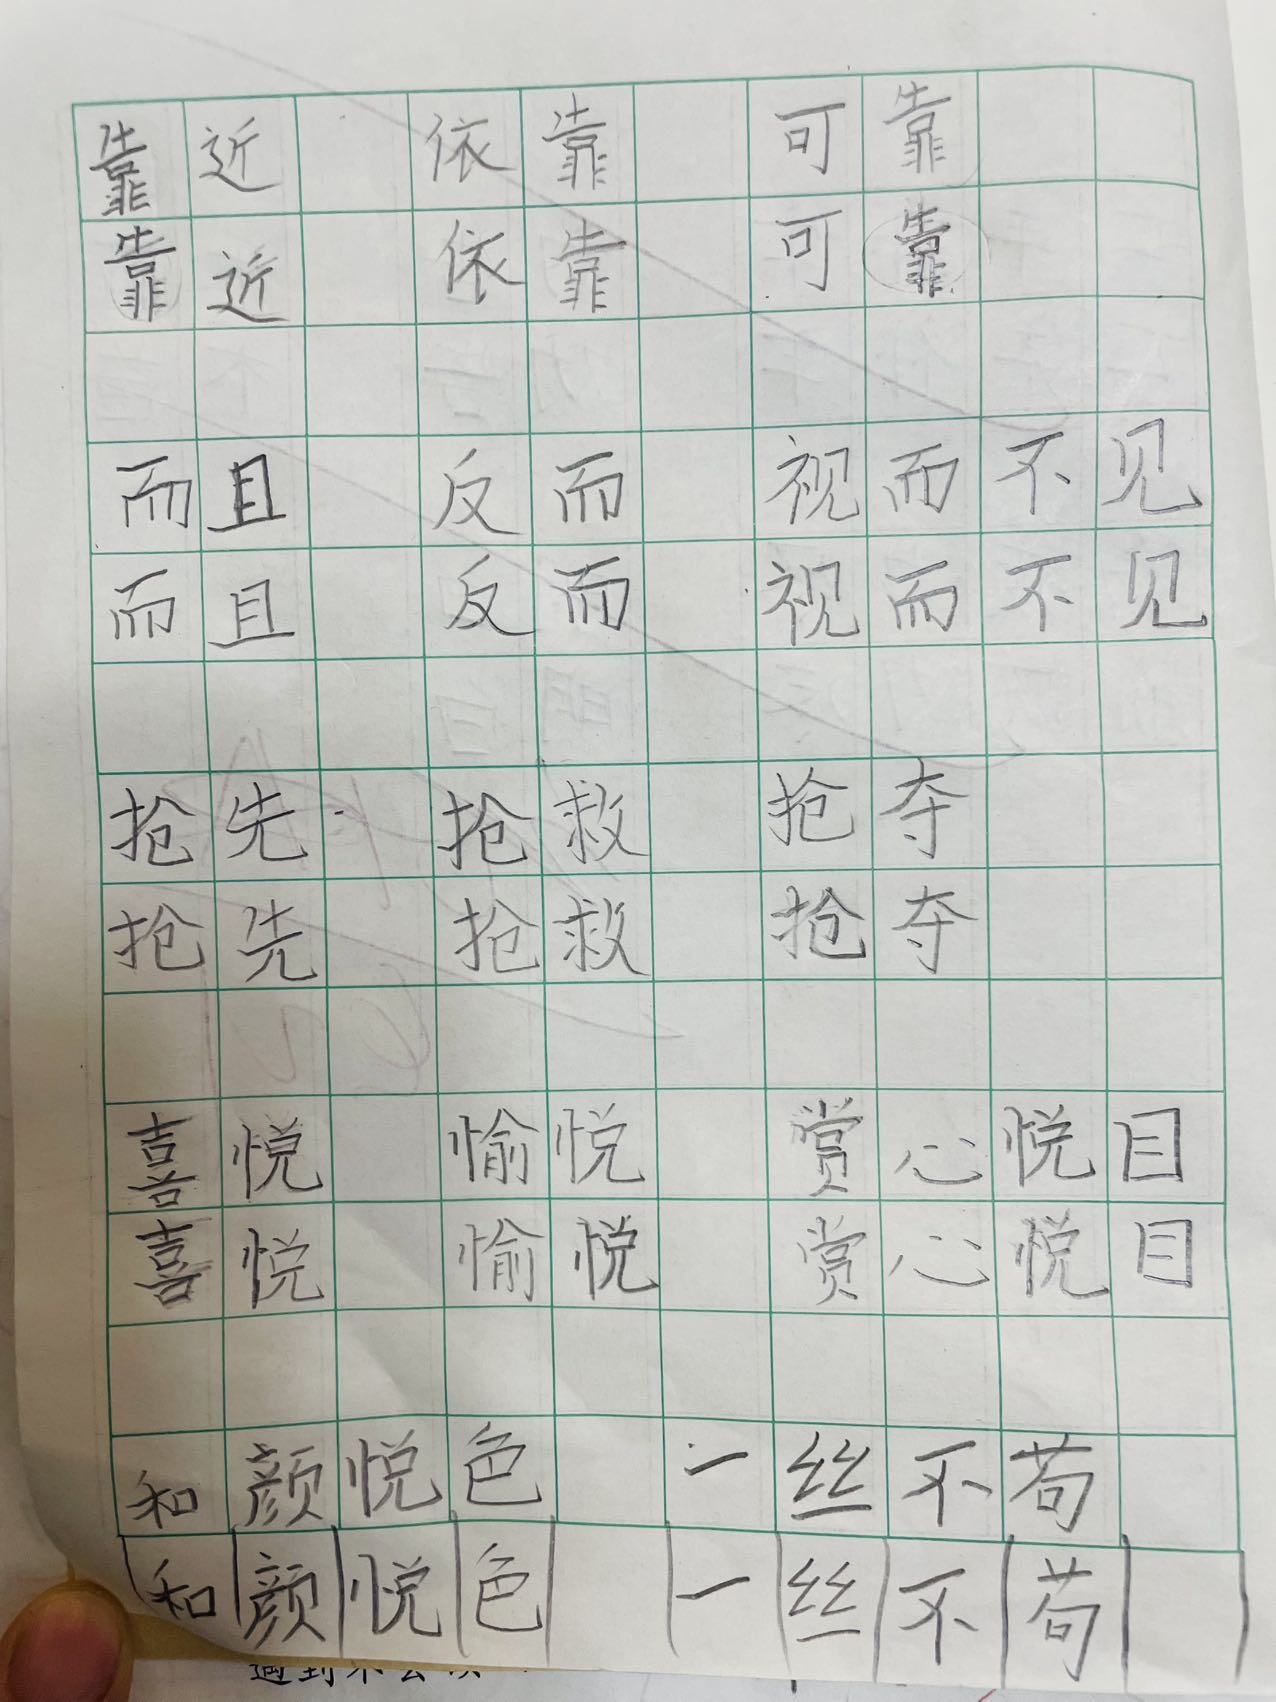 靠近 依靠 可靠
靠近 依靠 可靠
而且 反而 视而不见
而且 反而 视而不见
抢先 抢救 抢夺
抢先 抢救 抢夺
喜悦 愉悦 赏心悦目
喜悦 愉悦 赏心悦目
和颜悦色 一丝不苟
和颜悦色 一丝不苟